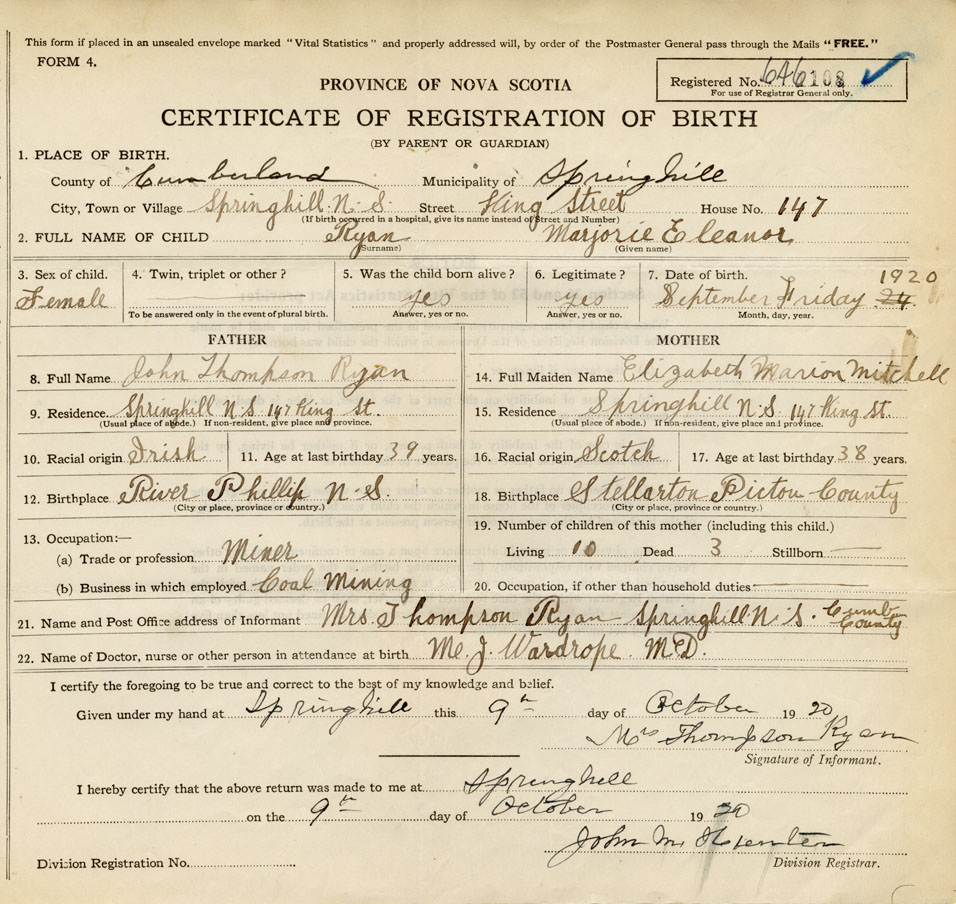 This form if placed in an unsealed envelope marked "Vital Statistics" and properly addressed will, by order of the Postmaster General pass through the Mails "FREE."
FORM 4.
Registered No. 646108
For use of Registrar General only.
PROVINCE OF NOVA SCOTIA
CERTIFICATE OF REGISTRATION OF BIRTH
(BY PARENT OR GUARDIAN)
1. PLACE OF BIRTH.
County of Cumberland Municipality of Springhill
City, Town or Village Springhill N.S. Street King Street House No. 147
(If birth occurred in a hospital, give its name instead of Street and Number)
2. FULL NAME OF CHILD Ryan Marjorie Eleanor
(Surname) (Given name)
3. Sex of child. 4. Twin, triplet or other? 5. Was the child born alive? 6. Legitimate? 7. Date of birth. 1920
Female yes yes September Friday 24.
To be answered only in the event of plural birth. Answer, yes or no. Answer, yes or no. Month, day, year.
FATHER MOTHER
8. Full Name John Thompson Ryan 14. Full Maiden Name Elizabeth Marion Mitchell
9. Residence. Springhill N.S. 147 King St. 15. Residence Springhill N.S. 147 King St.
(Usual place of abode.) If non-resident, give place and province. (Usual place of abode.) If non-resident, give place and province.
10. Racial origin Irish 11. Age at last birthday 39 years. 16. Racial origin Scotch 17. Age at last birthday 38 years.
12. Birthplace River Phillip N.S. 18. Birthplace Stellarton Pictou County
(City or place, province or country.) (City or place, province or country.)
13. Occupation:— 19. Number of children of this mother (including this child.)
(a) Trade or profession Miner Living 10 Dead 3 Stillborn —
(b) Business in which employed Coal Mining 20. Occupation, if other than household duties
21. Name and Post Office address of Informant Mrs. Thompson Ryan Springhill N.S. Cumb. County
22. Name of Doctor, nurse or other person in attendance at birth J. Wardrope. MD.
I certify the foregoing to be true and correct to the best of my knowledge and belief.
Given under my hand at Springhill this 9th day of October 1920
Mrs Thompson Ryan
Signature of Informant.
I hereby certify that the above return was made to me at Springhill
on the 9th day of October 1920
John M. Hunter
Division Registration No. Division Registrar.